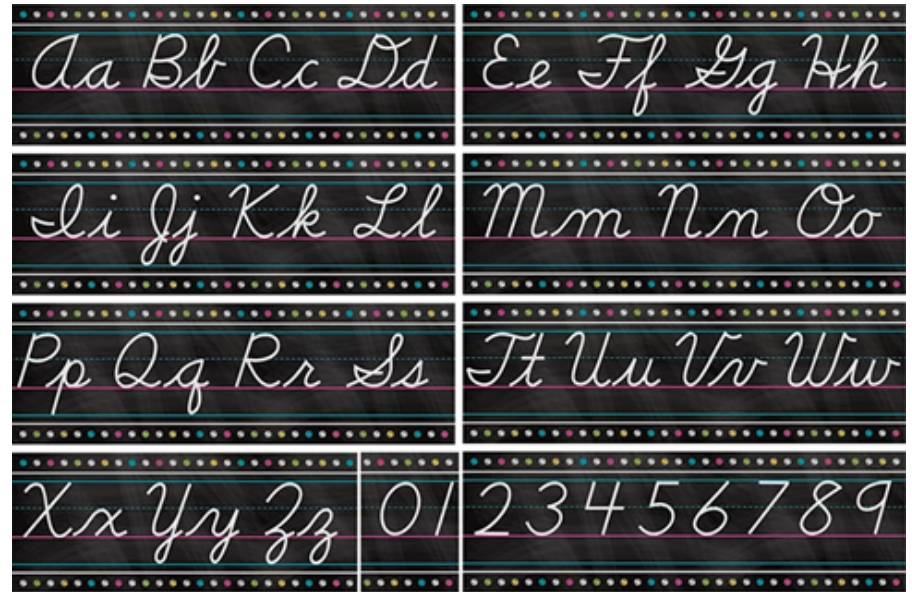 Aa Bb Cc Dd
Ee Ff Gg Hh
Ii Jj Kk Ll
Mm Nn Oo
Pp Qq Rr Ss
Tt Uu Vv Ww
Xx Yy Zz
01
23456789